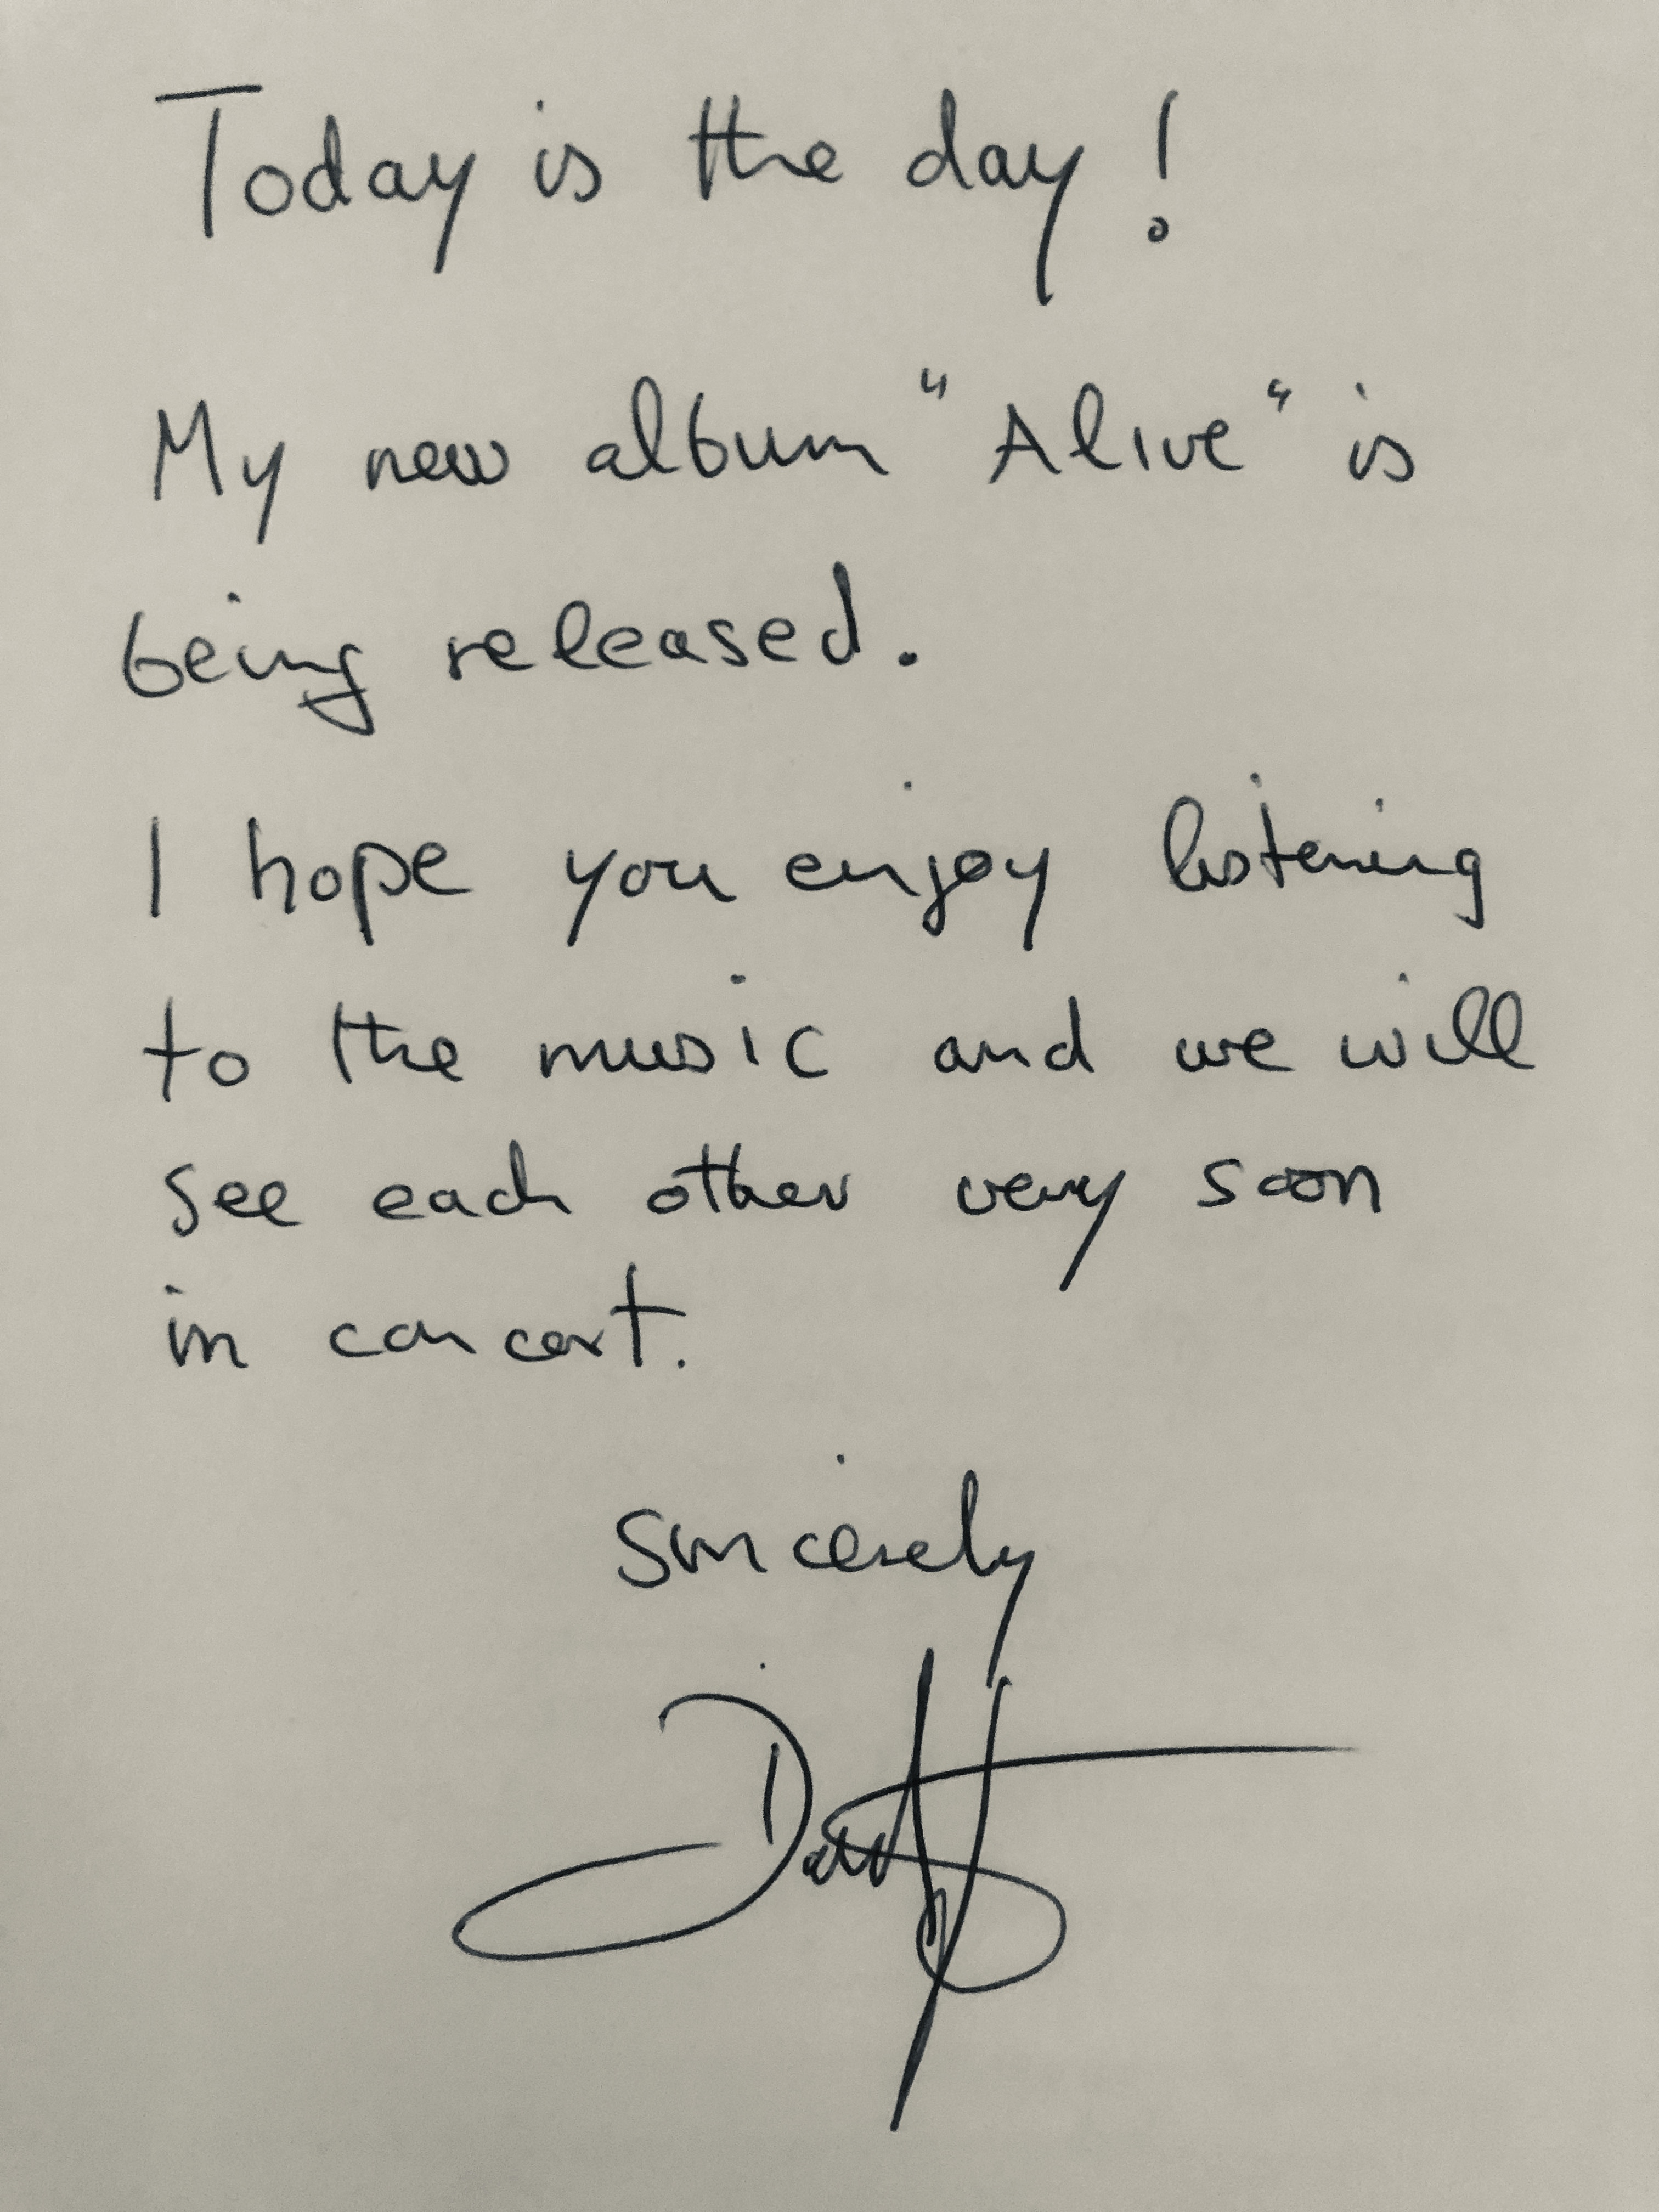 Today is the day!
My new album "Alive" is
being released.
I hope you enjoy listening
to the music and we will
see each other very soon
in concert.
Sincerely